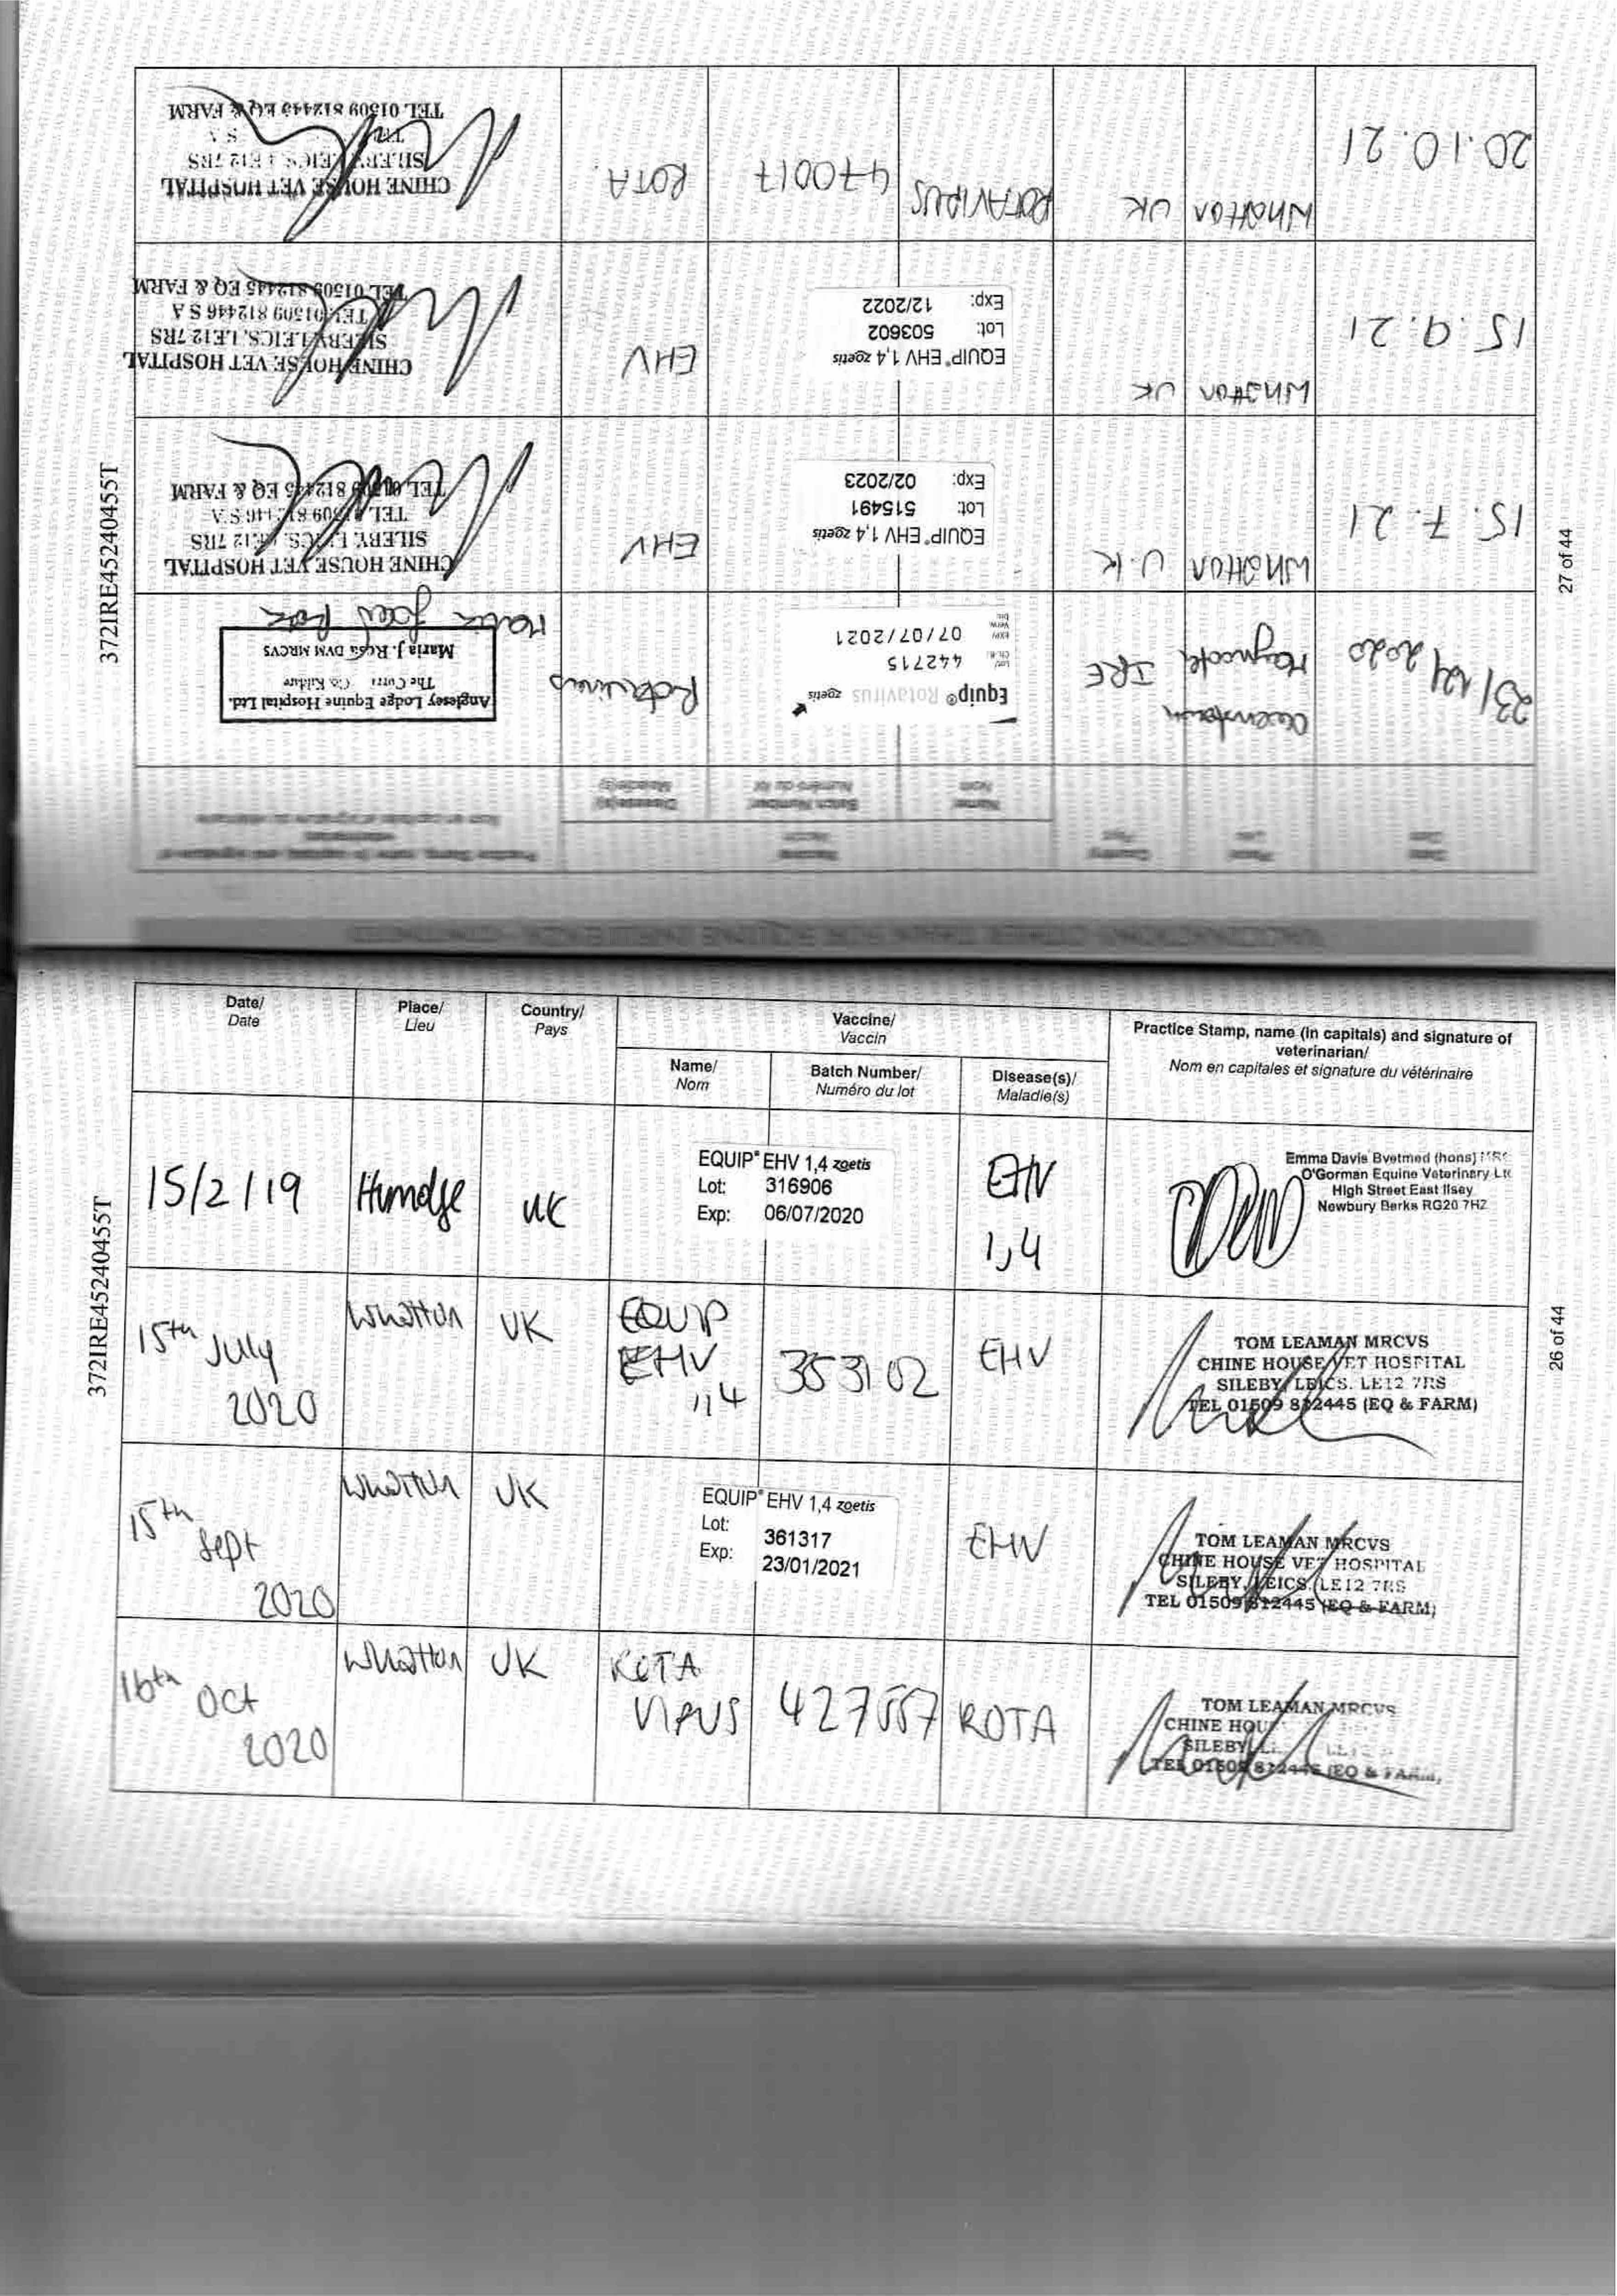 Date/
Date
Place/
Lieu
Country/
Pays
Vaccine/
Vaccin
Name/
Nom
Batch Number/
Numéro du lot
Disease(s)/
Maladie(s)
Practice Stamp, name (in capitals) and signature of
veterinarian/
Nom en capitales et signature du vétérinaire
15/2/19
UK
EQUIP® EHV 1,4 zoetis
Lot: 316906
Exp: 06/07/2020
EHV
1,4
Emma Davis Bvetmed (hons)
O'Gorman Equine Veterinary
High Street East Ilsey
Newbury Berks RG20 7HZ
15th July
2020
Whatton
UK
EQUIP
EHV
1,4
353102
EHV
TOM LEAMAN MRCVS
CHINE HOUSE VET HOSPITAL
SILEBY, LEICS. LE12 7RS
TEL 01509 812445 (EQ & FARM)
15th
Sept
2020
Whatton
UK
EQUIP® EHV 1,4 zoetis
Lot: 361317
Exp: 23/01/2021
EHV
TOM LEAMAN MRCVS
CHINE HOUSE VET HOSPITAL
SILEBY, LEICS. LE12 7RS
TEL 01509 812445 (EQ & FARM)
16th
Oct
2020
Whatton
UK
ROTA
VIRUS
427557
ROTA
TOM LEAMAN MRCVS
CHINE HOU
SILEBY
TEL 01509 812445 (EQ & FARM)
372IRE45240455T
26 of 44
VACCINATIONS OTHER THAN FOR EQUINE INFLUENZA - CONTINUED
Date
Date
Place
Lieu
Country
Pays
Vaccine
Vaccin
Name
Nom
Batch Number
Numéro du lot
Disease(s)
Maladie(s)
Practice Stamp, name (in capitals) and signature of
veterinarian
Nom en capitales et signature du vétérinaire
23/12/2020
Maynooth
IRE
Equip® Rotavirus zoetis
442715
07/07/2021
Rotavirus
Anglesey Lodge Equine Hospital Ltd.
The Curra Co. Kildare
Maria J. Rosa DVM MRCVS
15.7.21
Whatton
U.K
EQUIP® EHV 1,4 zoetis
Lot: 515491
Exp: 02/2023
EHV
CHINE HOUSE VET HOSPITAL
SILEBY, LEICS, LE12 7RS
TEL 01509 812446 S A
TEL 01509 812445 EQ & FARM
15.9.21
Whatton
UK
EQUIP® EHV 1,4 zoetis
Lot: 503602
Exp: 12/2022
EHV
CHINE HOUSE VET HOSPITAL
SILEBY, LEICS, LE12 7RS
TEL 01509 812446 S A
TEL 01509 812445 EQ & FARM
20.10.21
Whatton
UK
ROTAVIRUS
470017
ROTA.
CHINE HOUSE VET HOSPITAL
SILEBY, LEICS, LE12 7RS
TEL S A
TEL 01509 812445 EQ & FARM
372IRE45240455T
27 of 44